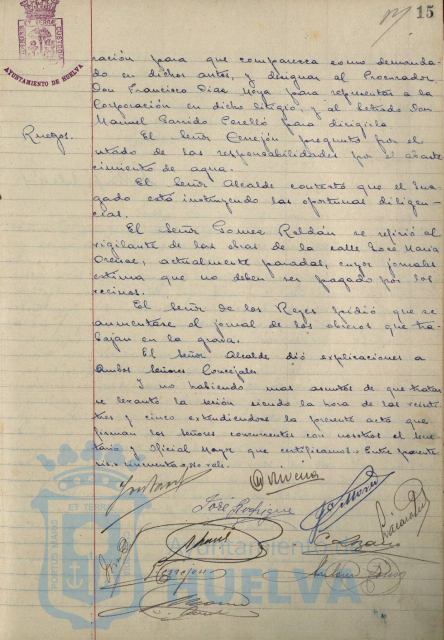 15
AYUNTAMIENTO DE HUELVA
ración para que comparezca como demanda-
do en dichos autos, y designar al Procurador
Don Francisco Díaz Moya para representar a la
Corporación en dicho litigio, y al letrado Don
Manuel Garrido Perelló para dirigirla.
Ruegos.
El Señor Cerrejón pregunta por el
estado de las responsabilidades por el abaste-
cimiento de agua.
El Señor Alcalde contestó que el Juz-
gado está instruyendo las oportunas diligen-
cias.
El Señor Gomez Roldán se refirió al
vigilante de las obras de la calle José María
actualmente paradas, cuyos jornales
estima que no deben ser pagados por los
vecinos.
El Señor de los Reyes pidió que se
aumentase el jornal de los obreros que tra-
bajan en la grava.
El Señor Alcalde dió explicaciones a
ambos Señores Concejales.
Y no habiendo mas asuntos de que tratar
se levantó la sesión siendo la hora de las veinte
tres y cinco extendiendose la presente acta que
firman los Señores concurrentes con nosotros el Secre-
tario y Oficial Mayor que certificamos.- Entre parente-
sis.- no vale.
José Rodríguez
Ayuntamiento de
HUELVA